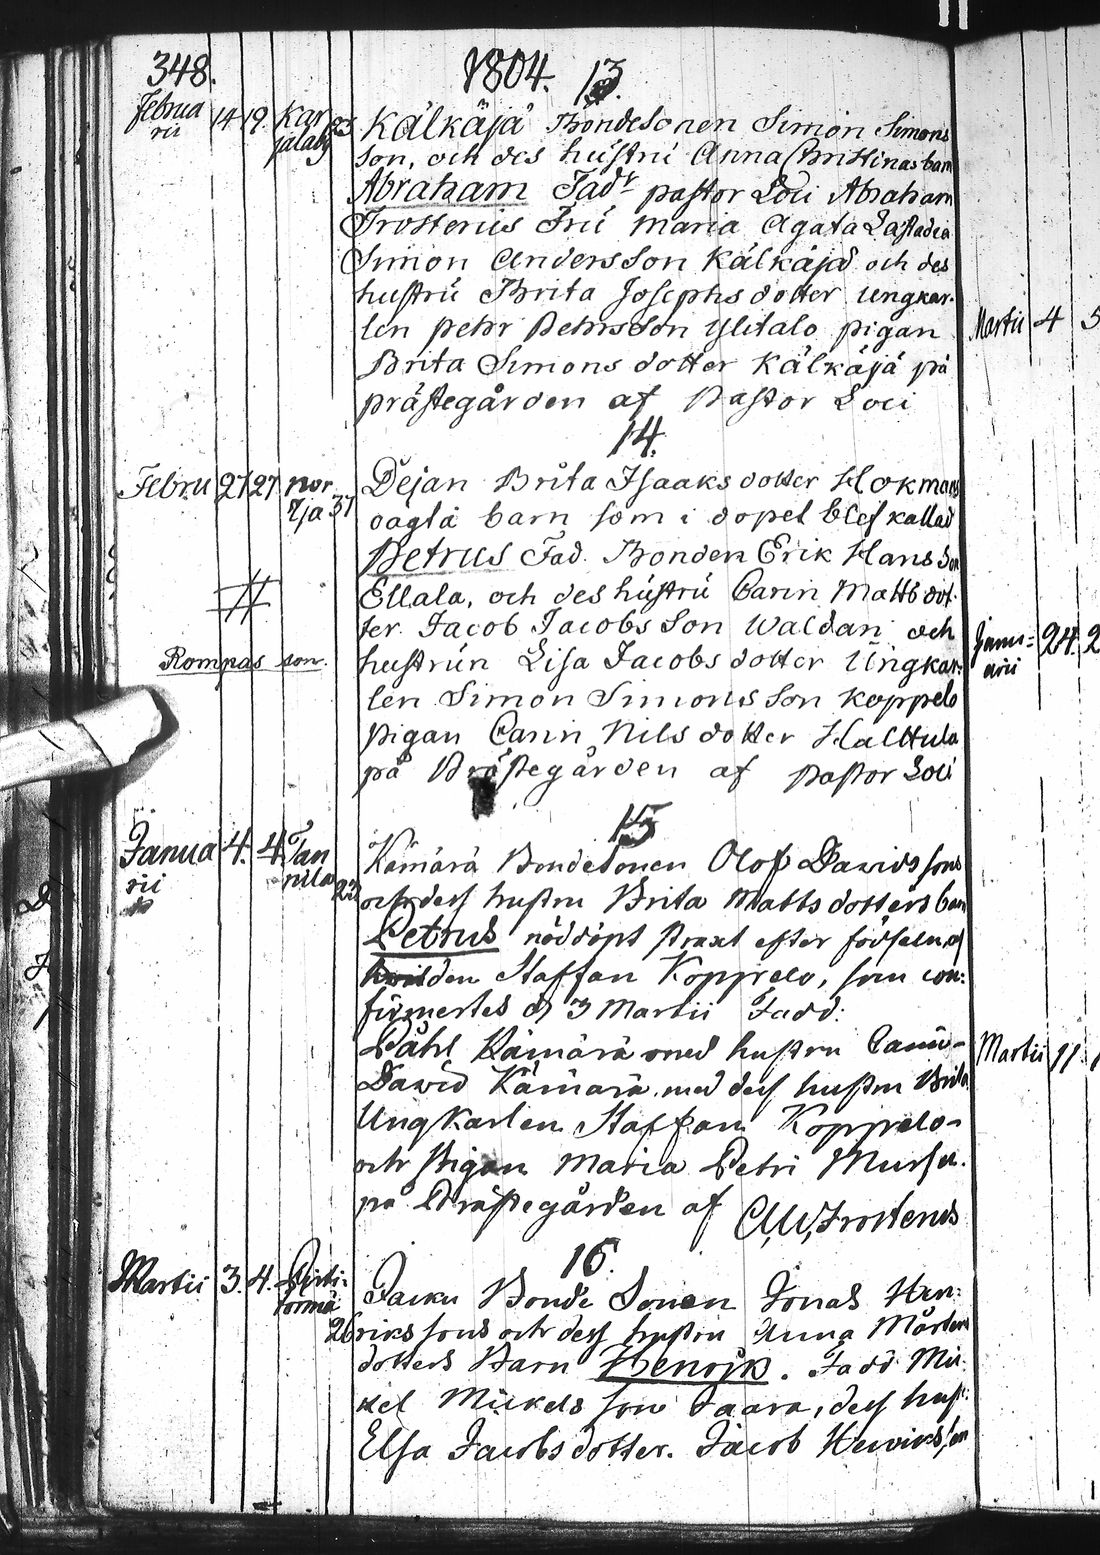 348.
1804.
13.
Februa
rii
14
19.
Kar
jalaby
23
Kälkäjä Bondesonen Simon Simons
son, och des hustru Anna Brittinas barn
Abraham Fadr pastor Loci Abraham
Frosterus Fru Maria Agata Lastadia
Simon Andersson Kälkäjä och des
hustru Brita Josephsdotter Ungkar-
len pehr Pehrsson Ylitalo pigan
Brita Simonsdotter Kälkäjä på
prästegården af Pastor Loci
14.
Febru
27
27
nor
rja 37
Dejan Brita Isaaksdotter Hokmans
oägta barn som i dopet blef kallad
Petrus Fad. Bonden Erik Hansson
Ellala, och des hustru Carin Mattsdot-
ter Jacob Jacobsson Waldari och
Rompas son.
hustrun Lisa Jacobsdotter Ungkar-
len Simon Simonsson Koppelo
pigan Carin Nilsdotter Halttula
på Prästegården af pastor Loci
15
Janua
rii
4.
4.
Tan
nila
23
Kämärä Bondesonen Olof Davidssons
och dess hustru Brita Mattsdotters barn
Petrus nöddöpt straxt efter födseln, af
den Staffan Koppelo, som con-
firmertes d 3 Martii Fadd:
Påhl Kämärä med hustru Carin-
David Kämärä med dess hustru Brita
Ungkarlen Staffan Koppelo-
och Pigan Maria Petri Mursu.
på Prästegården af Frosterus
16.
Martii
3.
4.
Pirti-
26
Bonde Sonen Jonas Hen-
riks sons och dess hustru Anna Mårtens
dotters Barn Henrik. Fadd Mic-
kel Mickels son Jaara, dess hust:
Elsa Jacobsdotter. Jacob Henriksson
Martii
4
5
Janu-
arii
24.
2
Martii
11